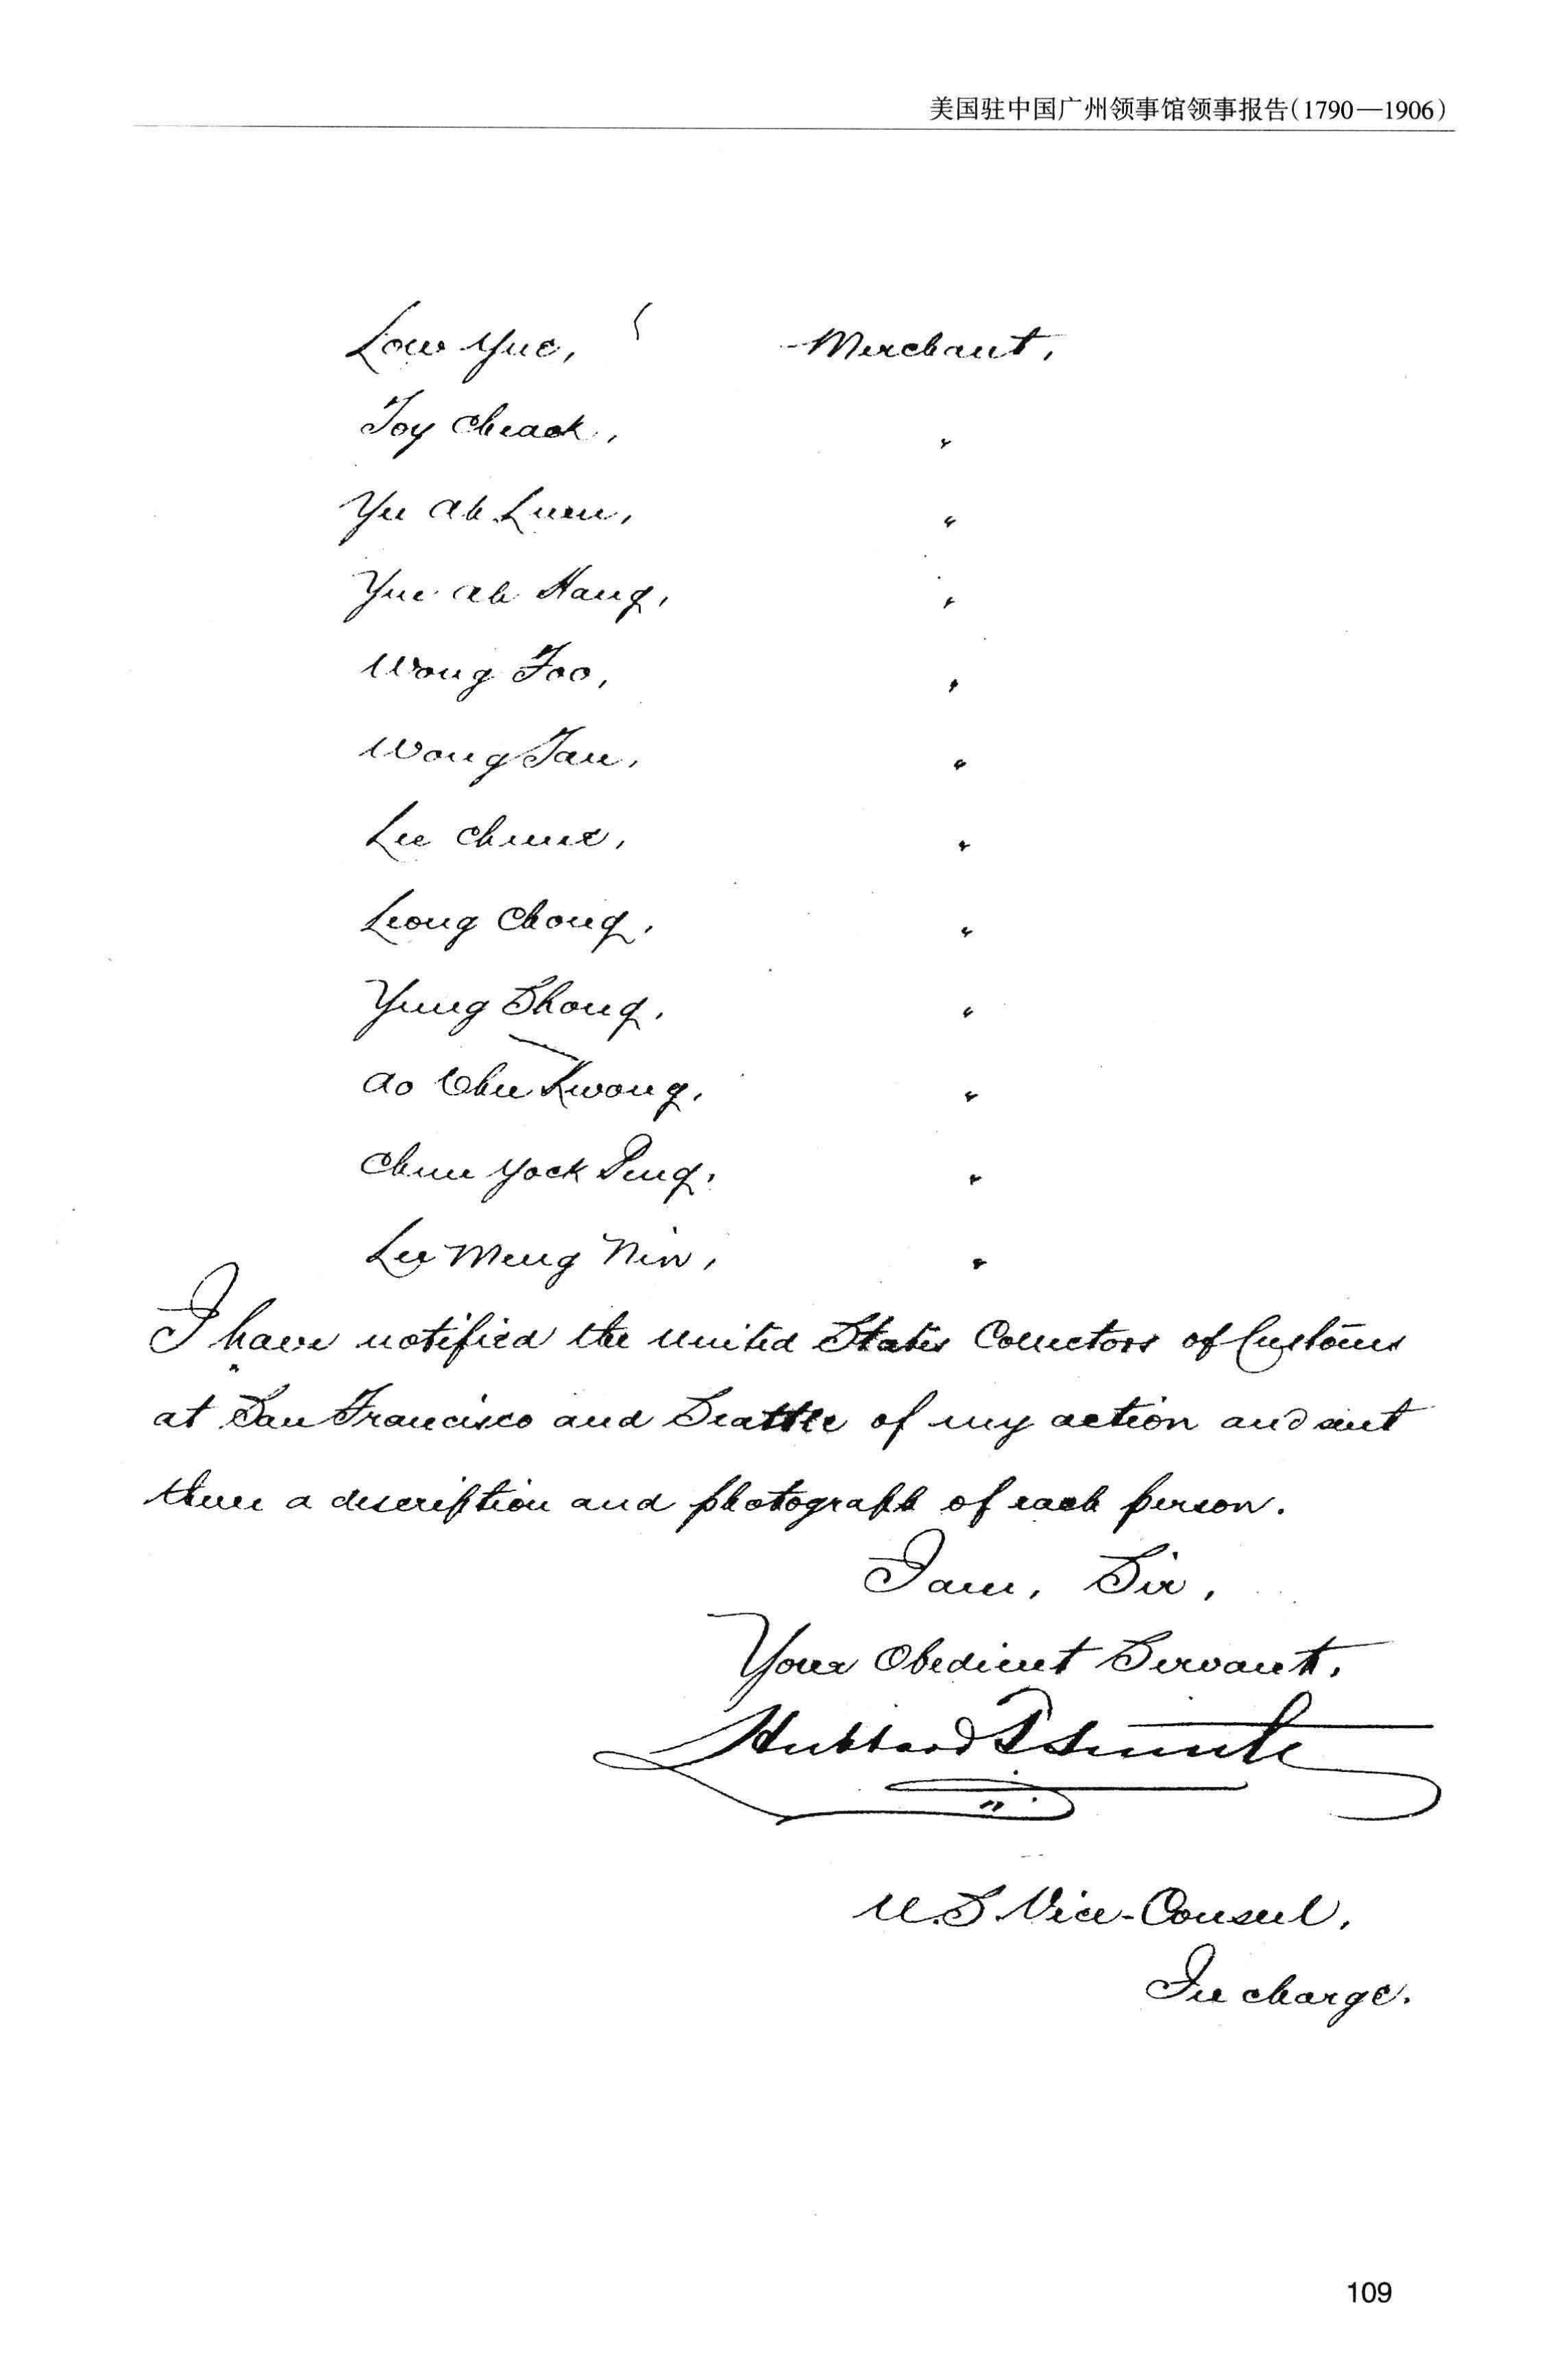 美国驻中国广州领事馆领事报告(1790—1906)
Low Yue, Merchant,
Toy Cheack, "
Yu Ah Luen, "
Yue Ah Hang, "
Wong Foo, "
Wong Tan, "
Lee Chune, "
Leong Chong, "
Yung Shong, "
Ao Chu Kwong, "
Chun Yock Ping, "
Lee Meng Nin, "
I have notified the United States Collectors of Customs
at San Francisco and Seattle of my action and sent
them a description and photograph of each person.
I am, Sir,
Your Obedient Servant,
Hubbard T Smith
U.S. Vice-Consul,
In charge.
109